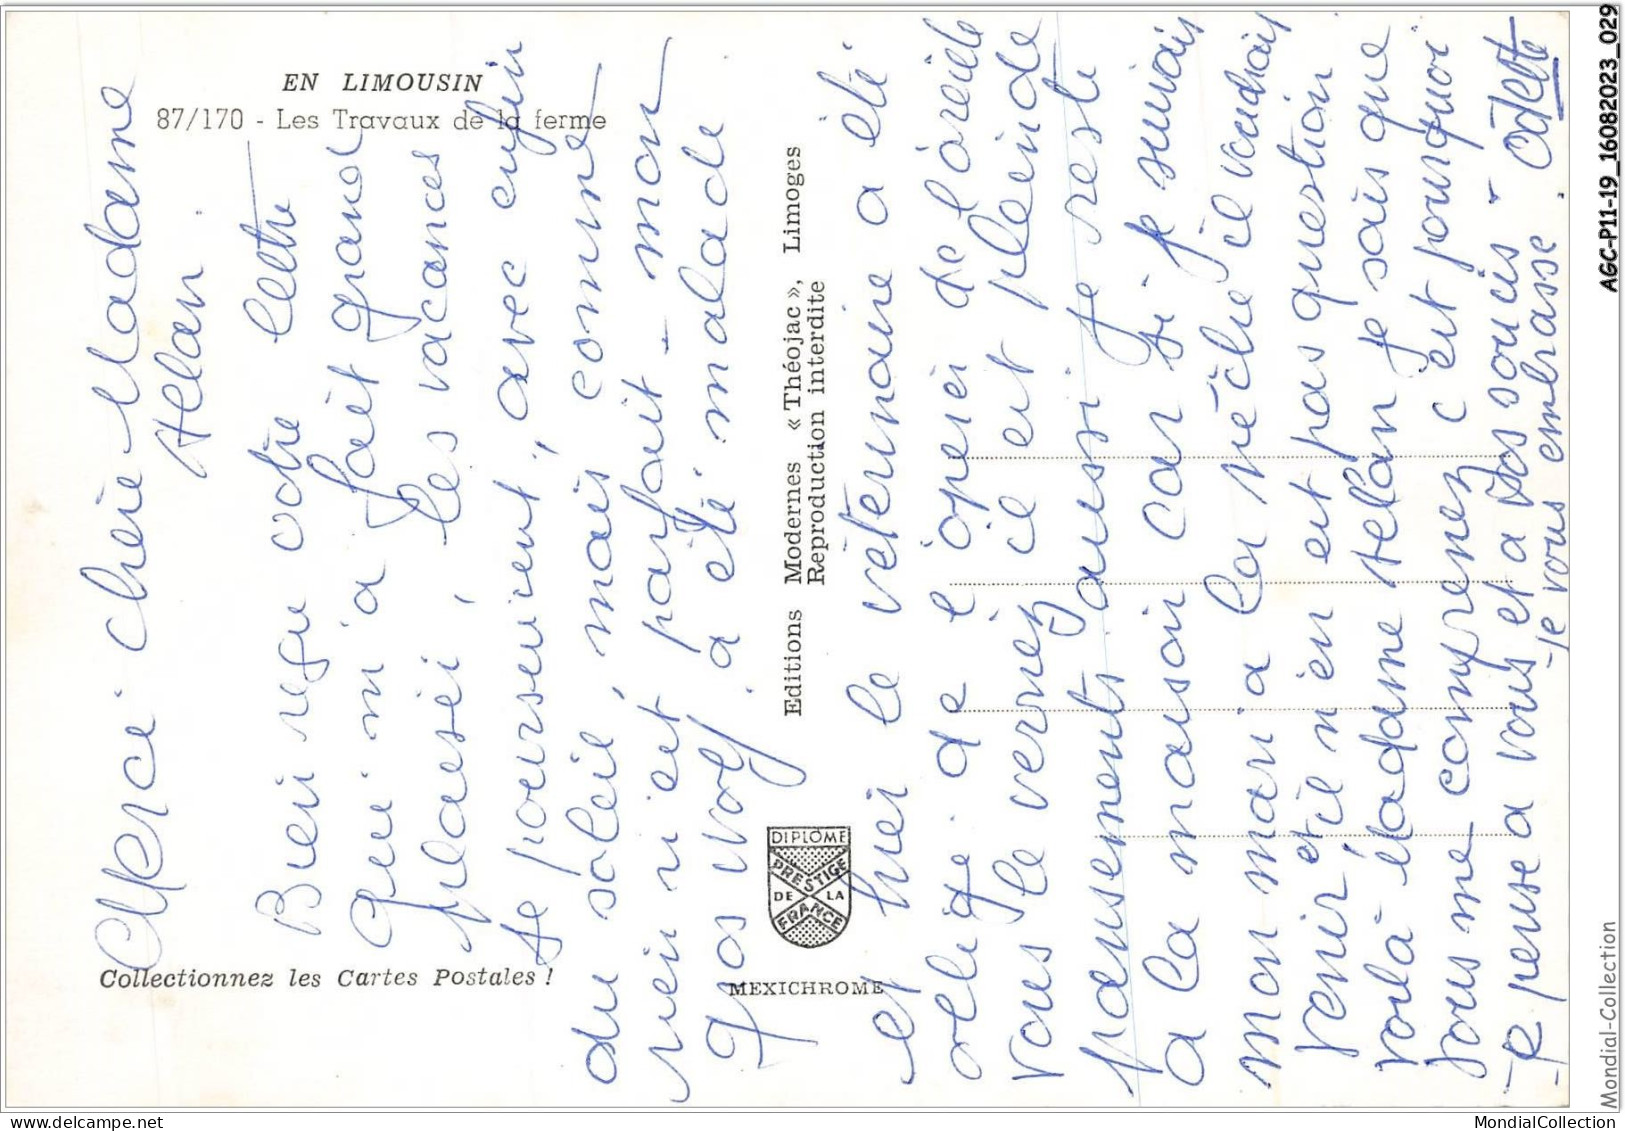 EN LIMOUSIN
87/170 - Les Travaux de la ferme
Merci chère Madame
Helan
Bien reçu votre lettre
qui m'a fait grand
plaisir, les vacances
se poursuivent, avec enfin
du soleil, mais comme
rien n'est parfait - mon
gros wolf a été malade
et hier le véterinaire a été
obligé de l'opérer de l'oreille
vous le verrez il est plein de
pansements aussi je reste
a la maison car si je suivais
mon mari a la pêche il voudrait
venir et il n'en est pas question
voilà Madame Helan je sais que
vous me comprenez c'est pourquoi
je pense a vous et a vos soucis -
je vous embrasse. Odette
Editions Modernes « Théojac », Limoges
Reproduction interdite
DIPLOME
PRESTIGE
DE LA
FRANCE
Collectionnez les Cartes Postales !
MEXICHROME
AGC-P11-19_16082023_029
Mondial-Collection
MondialCollection